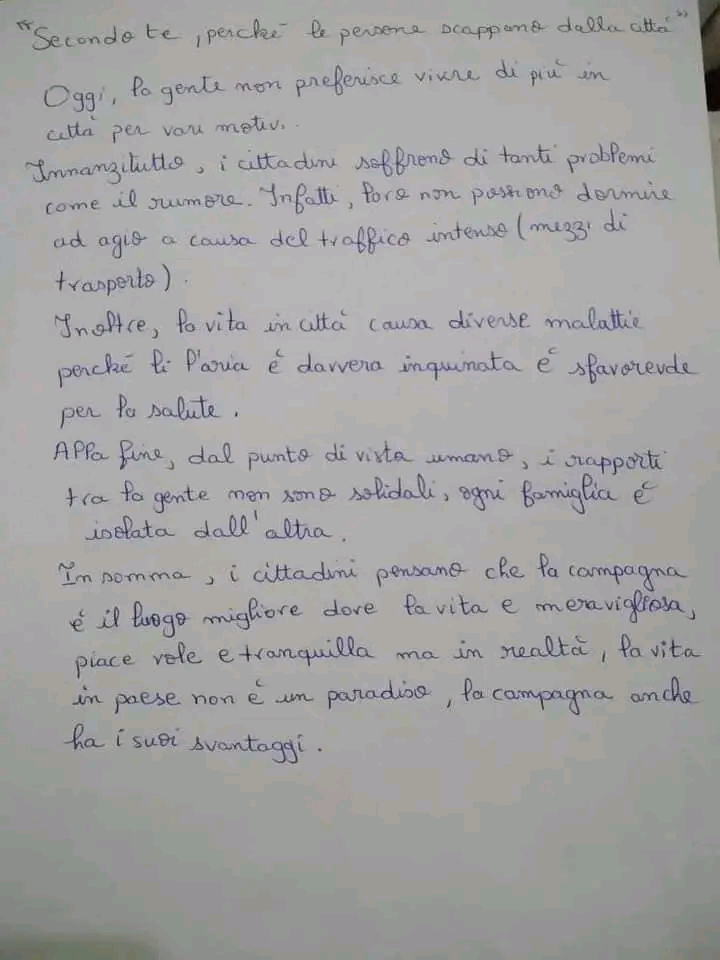 "Secondo te, perché le persone scappano dalla città"
Oggi, la gente non preferisce vivere di più in
città per vari motivi.
Innanzitutto, i cittadini soffrono di tanti problemi
come il rumore. Infatti, loro non possono dormire
ad agio a causa del traffico intenso (mezzi di
trasporto).
Inoltre, la vita in città causa diverse malattie
perché li l'aria é davvera inquinata é sfavorevole
per la salute.
Alla fine, dal punto di vista umano, i rapporti
tra la gente non sono solidali, ogni famiglia é
isolata dall'altra.
In somma, i cittadini pensano che la campagna
é il luogo migliore dove la vita e meravigliosa,
piace vole e tranquilla ma in realtà, la vita
in paese non é un paradiso, la campagna anche
ha i suoi svantaggi.